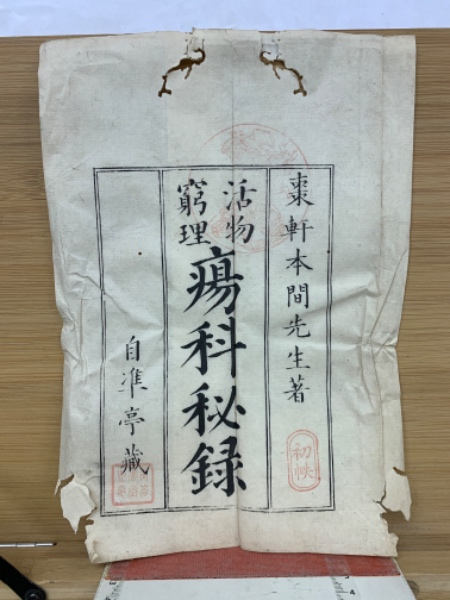 棗軒本間先生著
初帙
活物
窮理
瘍科秘録
自準亭藏